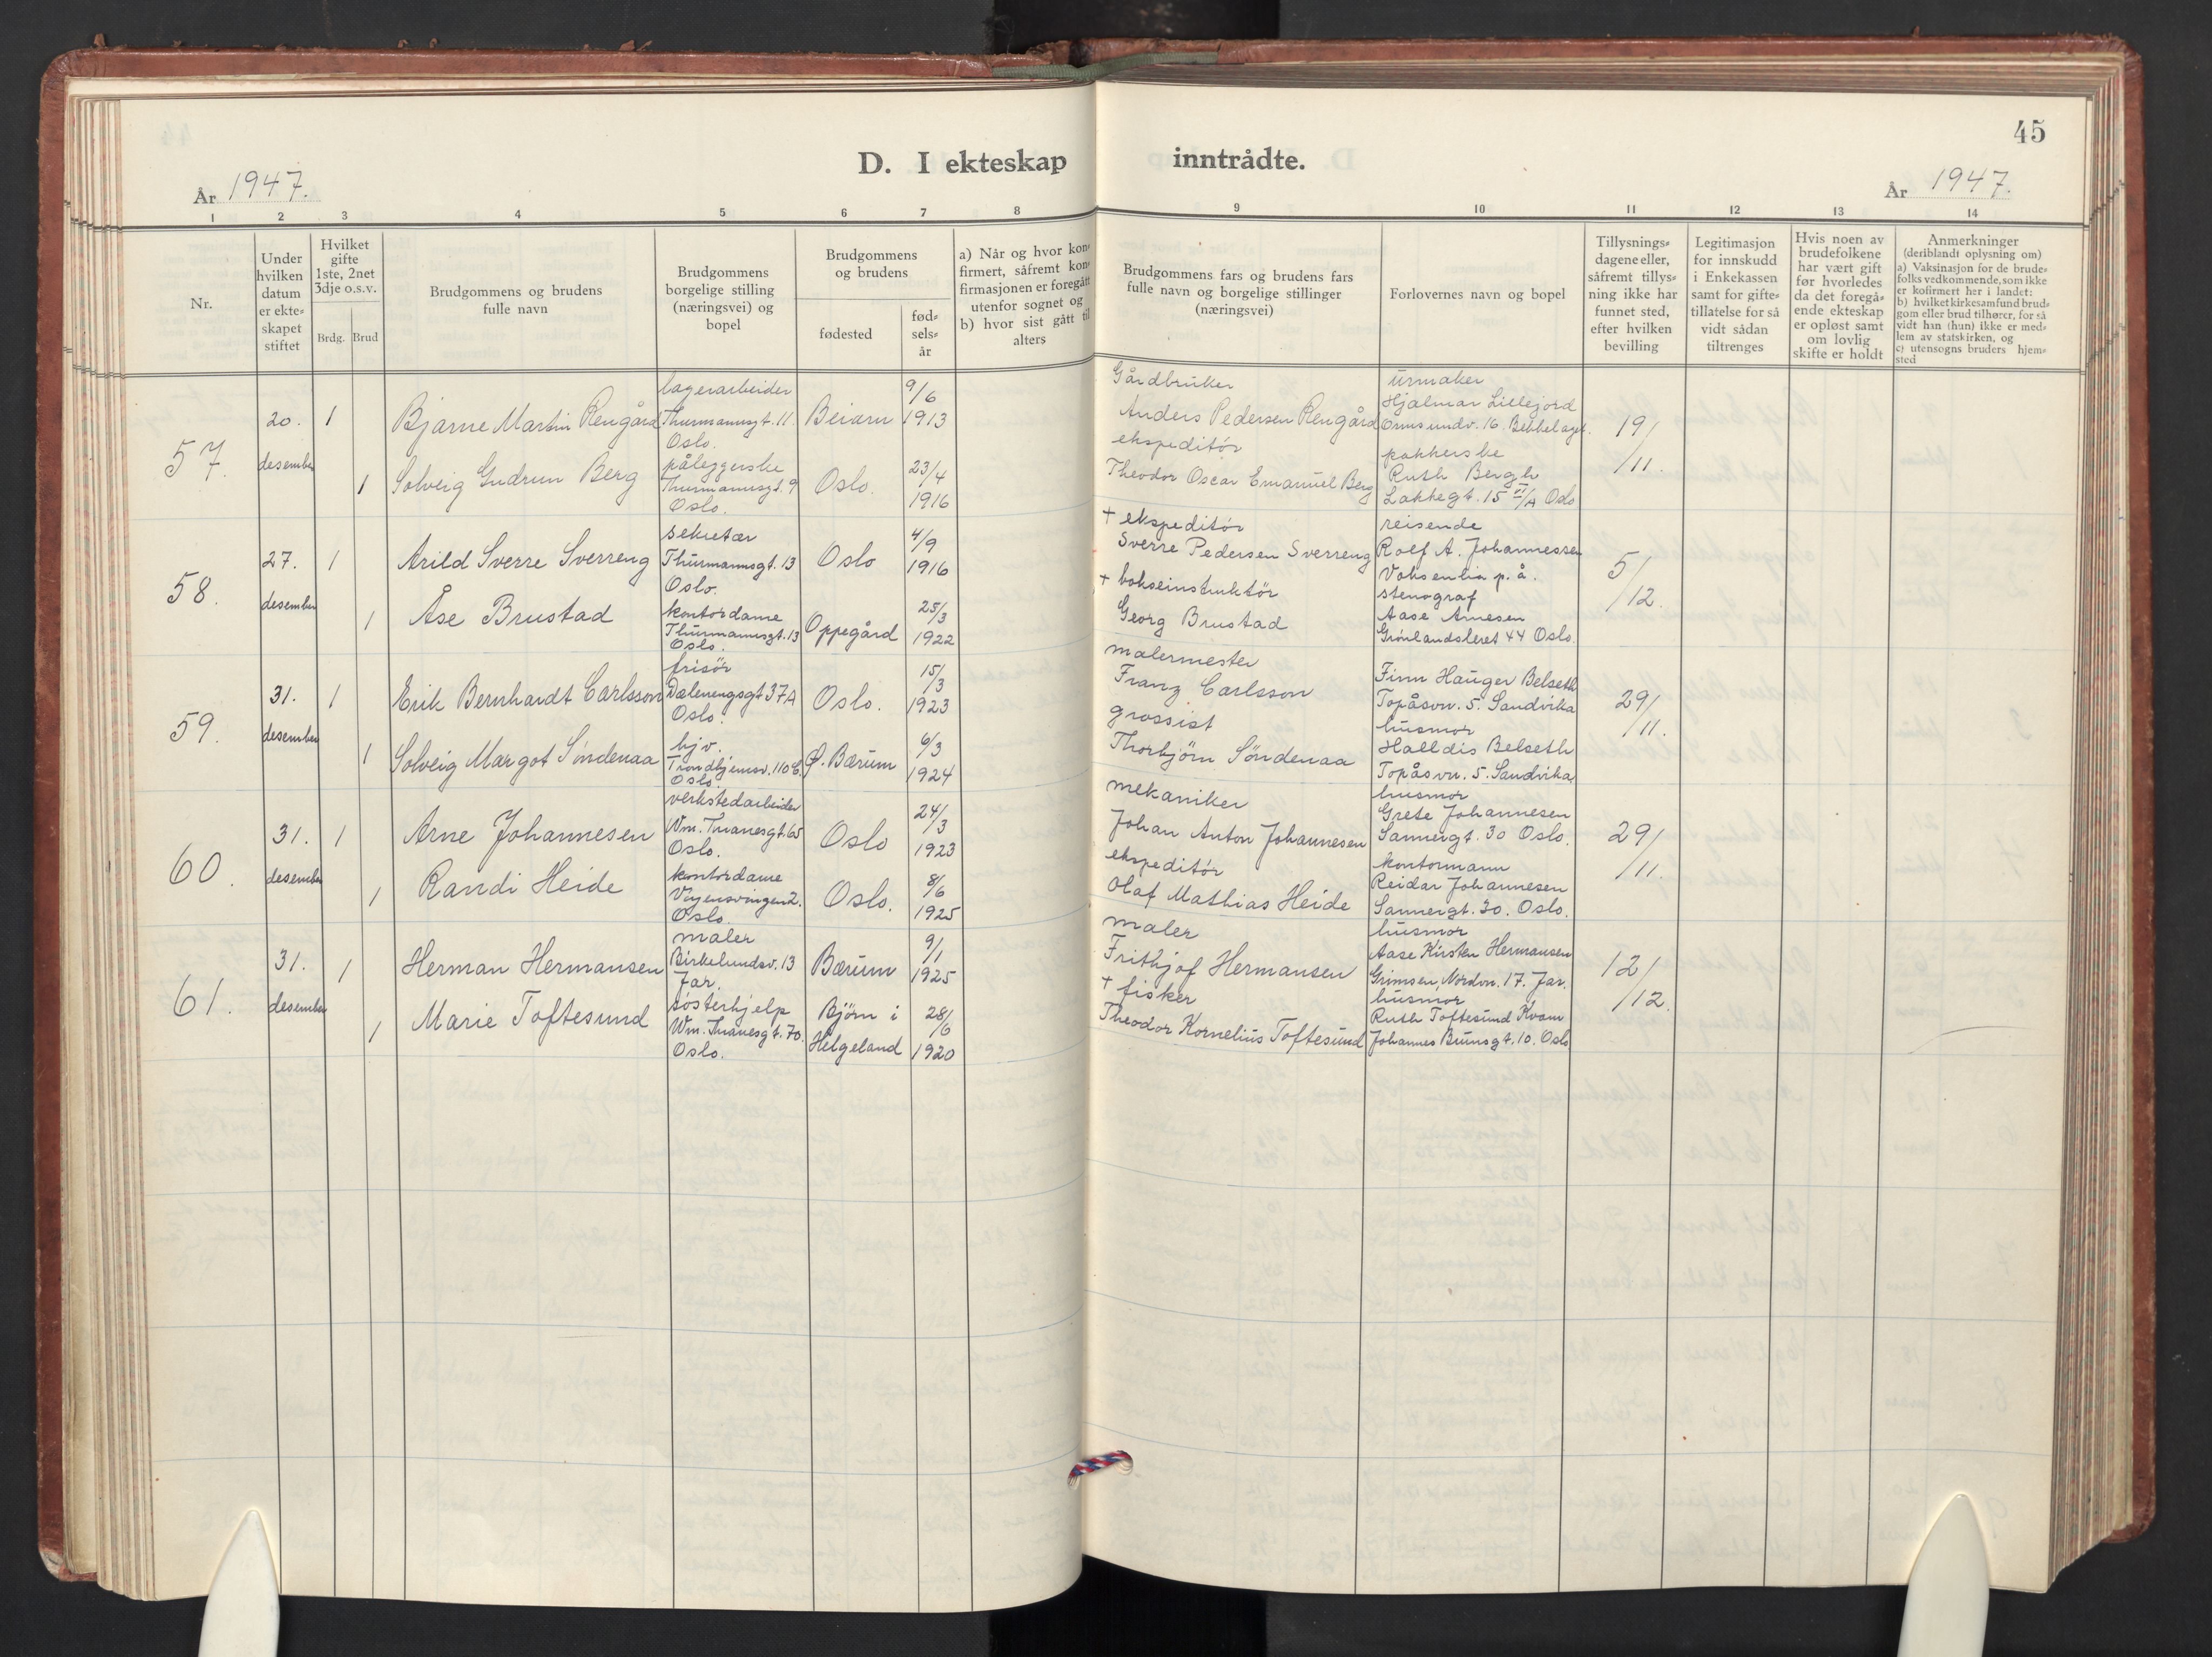 45
D. I ekteskap inntrådte.
År 1947.
År 1947.
1 2 3 4 5 6 7 8 9 10 11 12 13 14
Nr.
Under
hvilken
datum
er ekte-
skapet
stiftet
Hvilket
gifte
1ste, 2net
3dje o.s.v.
Brdg. Brud
Brudgommens og brudens
fulle navn
Brudgommens
borgelige stilling
(næringsvei) og
bopel
Brudgommens
og brudens
fødested
fød-
sels-
år
a) Når og hvor kon-
firmert, såfremt kon-
firmasjonen er foregått
utenfor sognet og
b) hvor sist gått til
alters
Brudgommens fars og brudens fars
fulle navn og borgelige stillinger
(næringsvei)
Forlovernes navn og bopel
Tillysnings-
dagene eller,
såfremt tillys-
ning ikke har
funnet sted,
efter hvilken
bevilling
Legitimasjon
for innskudd
i Enkekassen
samt for gifte-
tillatelse for så
vidt sådan
tiltrenges
Hvis noen av
brudefolkene
har vært gift
før hvorledes
da det foregå-
ende ekteskap
er opløst samt
om lovlig
skifte er holdt
Anmerkninger
(deriblandt oplysning om)
a) Vaksinasjon for de brude-
folks vedkommende, som ikke
er kofirmert her i landet;
b) hvilket kirkesamfund brud-
gom eller brud tilhører, for så
vidt han (hun) ikke er med-
lem av statskirken, og
c) utensogns bruders hjem-
sted
57.
20.
desember
1
Bjarne Martin Rengård
lagerarbeider
Thurmannsgt. 11
Oslo.
Beiarn
9/6
1913
1
Solveig Gudrun Berg
påleggerske
Thurmannsgt. 9
Oslo.
Oslo.
23/4
1916
Gårdbruker
Anders Pedersen Rengård
ekspeditör
Theodor Oscar Emanuel Berg
urmaker
Hjalmar Lillejord
Ormsundv. 16. Bekkelaget.
pakkerske
Ruth Bergh
Lakkegt. 15 II/A Oslo
19/11.
58.
27.
desember
1
Arild Sverre Sverreng
sekretær
Thurmannsgt. 13
Oslo.
Oslo
4/9
1916
1
Åse Brustad
kontordame
Thurmannsgt. 13
Oslo.
Oppegård
25/3
1922
+ ekspeditör
Sverre Pedersen Sverreng
+ bokseinstruktör
Georg Brustad
reisende
Rolf A. Johannessen
Voksenlia p. å.
stenograf
Aase Arnesen
Grönlandsleret 44 Oslo.
5/12.
59.
31.
desember
1
Erik Bernhardt Carlsson
frisör
Dælenengsgt 37A
Oslo.
Oslo.
15/3
1923
1
Solveig Margot Söndenaa
hjv.
Trondhjemsv. 110 C.
Oslo.
Ø. Bærum
6/3
1924
malermester
Franz Carlsson
grossist
Thorbjörn Söndenaa
Finn Hauger Belseth
Topåsvn. 5. Sandvika
husmor
Halldis Belseth
Topåsvn. 5. Sandvika,
29/11.
60.
31.
desember
1
Arne Johannesen
verkstedarbeider
Wm. Thranesgt. 65
Oslo.
Oslo
24/3
1923
1
Randi Heide
kontordame
Vøyensvingen 2.
Oslo.
Oslo.
8/6
1925
mekaniker
Johan Anton Johannesen
ekspeditör
Olaf Mathias Heide
husmor
Grete Johannesen
Sannergt. 30 Oslo.
kontormann
Reidar Johannesen
Sannergt. 30. Oslo.
29/11.
61.
31.
desember
1
Herman Hermansen
maler
Birkelundsv. 13
Jar.
Bærum
9/1
1925
1
Marie Toftesund
søsterhjelp
Wm. Thranesgt. 70.
Oslo.
Björn i
Helgeland
28/6
1920
maler
Frithjof Hermansen
+ fisker
Theodor Kornelius Toftesund
husmor
Aase Kirsten Hermansen
Grimsen, Nordvn. 17. Jar.
husmor
Ruth Toftesund Kvam
Johannes Brunsgt. 10. Oslo
12/12.